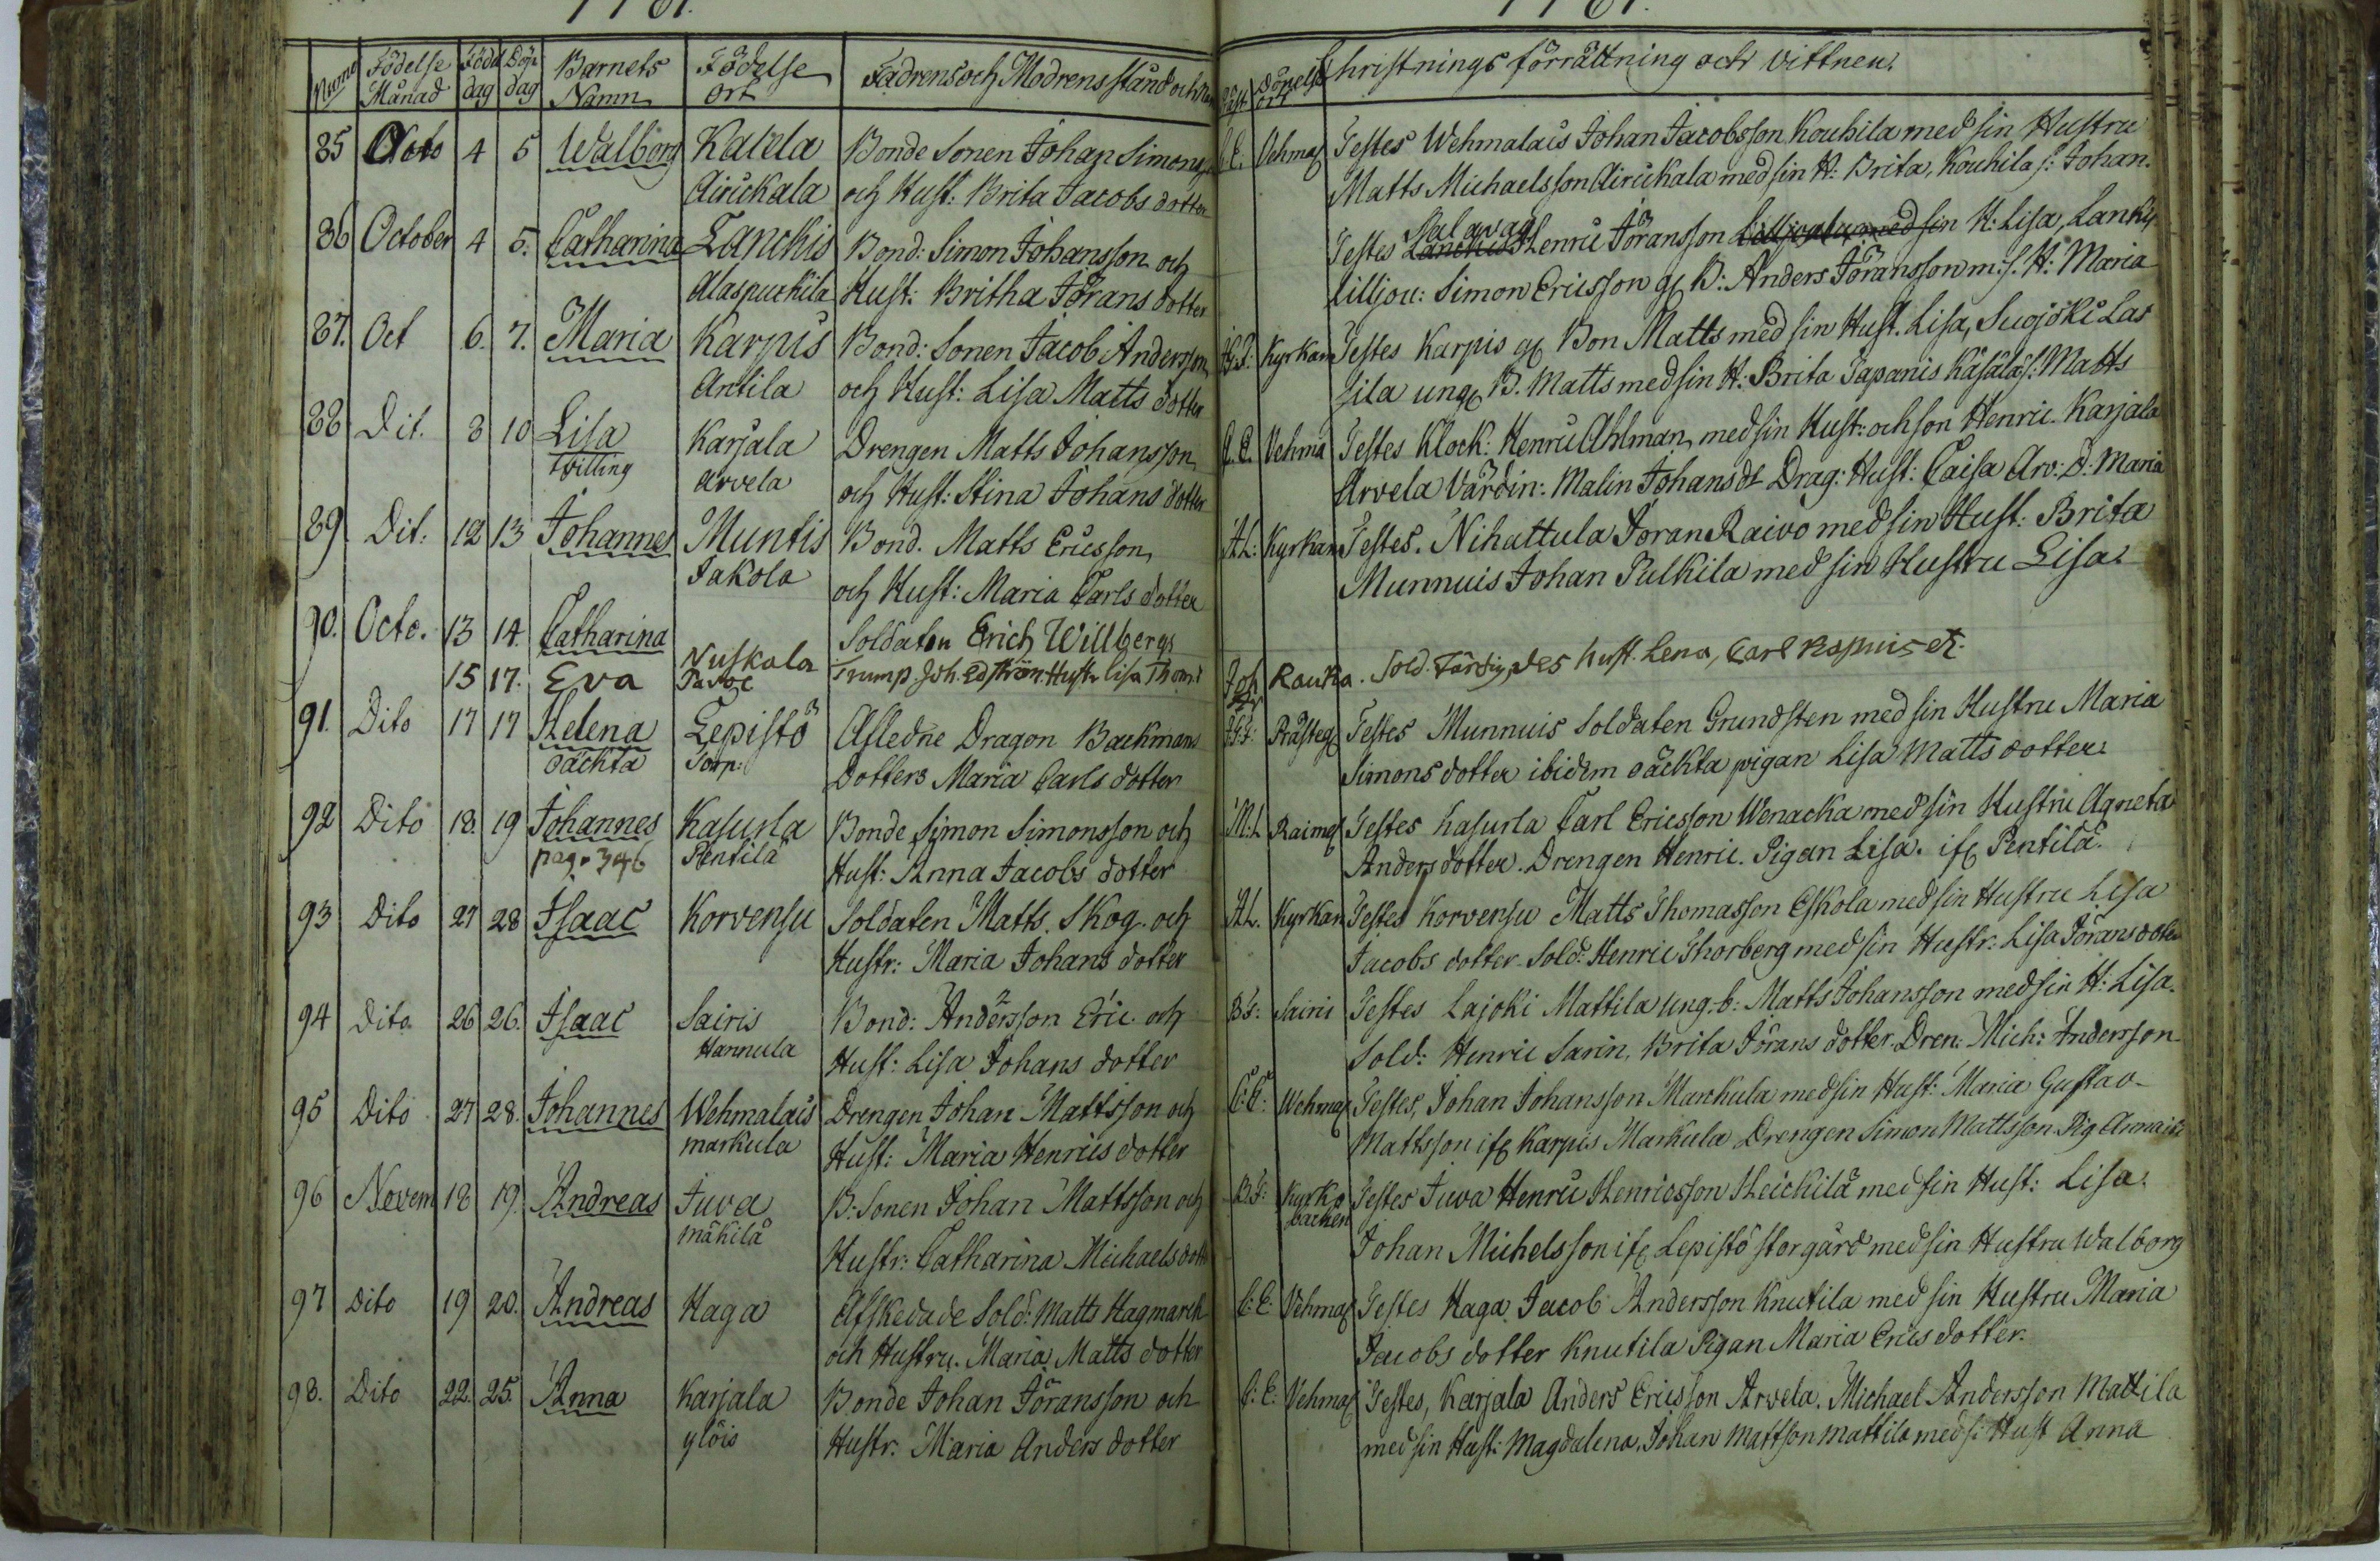 Numro Födelse Månad Född dag Döp dag Barnets Namn Födelse Ort Fadrens och Modrens stånd och
85 Octo 4 5 Walborg Kalela Bonde Sonen Johan Simons
Airickala och Hust: Brita Jacobs dotter
86 October 4 5. Catharina Lanckis Bond: Simon Johansson och
Alaspuckila Hust: Britha Jörans dotter
87. Oct 6. 7. Maria Karpis Bond: Sonen Jacob Andersson
Antila och Hust: Lisa Matts dotter
88 Dit. 8 10 Lisa Karjala Drengen Matts Johansson
tvilling arvela och Hust: Stina Johans dotter
89 Dit: 12 13 Johannes Muntis Bond. Matts Ericsson
Jakola och Hust: Maria Carls dotter
90. Octo. 13 14. Catharina Soldaten Erich Willbergs
15 17. Eva Nuskala Trump. Joh. Edström. Hustr Lisa Thom:
91. Dito 17 17 Helena Lepistö Afledne Dragon Backmans
oächta Torp: Dotters Maria Carls dotter
92 Dito 18. 19 Johannes Kasurla Bonde Simon Simonsson och
pag. 346 Pentilä Hust: Anna Jacobs dotter
93 Dito 27 28 Isaac Korvensu Soldaten Matts. Skog. och
Hustr: Maria Johans dotter
94 Dito. 26 26. Isaac Sairis Bond: Andersson Eric. och
Hannula Hust: Lisa Johans dotter
95 Dito 27 28. Johannes Wehmalais Drengen Johan Mattsson och
markula Hust: Maria Henrics dotter
96 Novem 18 19. Andreas Juva B: Sonen Johan Mattsson och
mäkilä Hustr: Catharina Michaels dott
97 Dito 19 20. Andreas Haga Afskedade Sold: Matts Hagmarck
och Hustru. Maria Matts dotter
98. Dito 22. 25. Anna Karjala Bonde Johan Jöransson och
ylöis Hustr: Maria Anders dotter
Döpelse ort Christnings förrättning och vittnen.
C.E. Vehma Testes Wehmalais Johan Jacobsson Kouhila med sin Hustru
Matts Michaelsson Airickala med sin H: Brita, Kouhila s: Johan.
Testes Lanckis Henric Jöransson med sin H: Lisa, Lankis
Lilljou: Simon Ericsson B: Anders Jöransson m: s. H: Maria
Kyrkan Testes Karpis Bon Matts med sin Hust. Lisa, Suojöki Las
sila ung B. Matts med sin H: Brita Papanis Käsälä s: Matts
C.E. Vehma Testes Klock: Henric Ahlman, med sin Hust: och son Henric. Karjala
Arvela Värdin: Malin Johans dt Drag: Hust: Caisa Arv: D: Maria
A.L: Kyrkan Testes. Nihattula Jöran Raivo med sin Hust: Brita
Munnuis Johan Pulkila med sin Hustru Lisa.
Joh Rauka. Sold. Färdig, des hust. Lena, Carl
J.G.F: Prästeg Testes Munnuis Soldaten Grundsten med sin Hustru Maria
Simons dotter ibidem oächta pigan Lisa Matts dotter.
M:L Raimes Testes Kasurla Carl Ericsson Wenacka med sin Hustru Agneta
Anders dotter. Drengen Henric. Pigan Lisa. Pentilä.
A.L. Kyrkan Testes Korvensu Matts Thomasson Eskola med sin Hustru Lisa
Jacobs dotter. Sold: Henric Thorberg med sin Hustr: Lisa Jörans doter
B:F: Sairis Testes Lajoki Mattila ung. b: Matts Johansson med sin H: Lisa.
Sold: Henric Sarin. Brita Jörans dotter. Dren: Mich: Andersson
C:E: Wehma Testes, Johan Johansson Marckula med sin Hust: Maria Gustav
Mattsson Karpis Markula Drengen Simon Mattsson Pig
B:F: Kyrko Testes Juva Henric Henricsson Heickilä med sin Hust: Lisa.
backen Johan Michelsson Lepistö storgård med sin Hustru Walborg
C:E: Vehma Testes Haga. Jacob Andersson Knutila med sin Hustru Maria
Jacobs dotter Knutila Pigan Maria Erics dotter.
C:E: Vehma Testes, Karjala Anders Ericsson Arvela. Michael Andersson Mattila
med sin Hust: Magdalena, Johan Mattson Mattila med s: Hust Anna